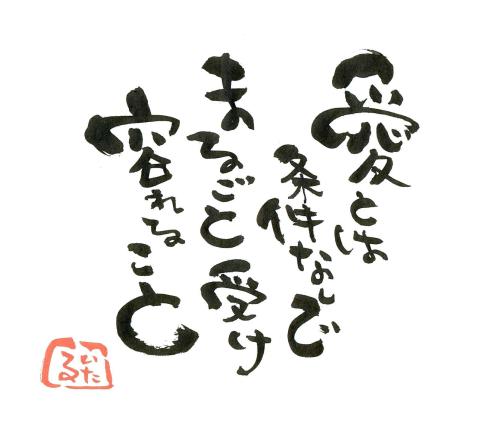 愛とは
条件なしで
まるごと受け
容れること
いたる